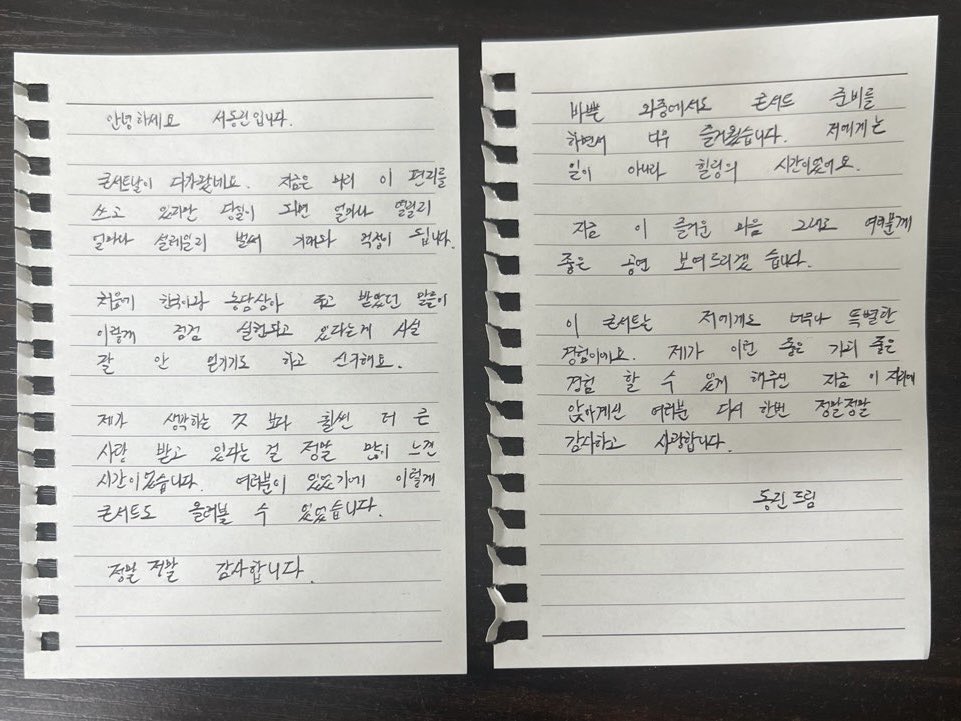 안녕하세요 서동린입니다.
콘서트날이 다가왔네요. 지금은 미리 이 편지를
쓰고 있지만 당일이 되면 얼마나 떨릴지
얼마나 설레일지 벌써 기대와 걱정이 됩니다.
처음에 한국와라 농담삼아 하고 받았던 말들이
이렇게 점점 실현되고 있다는게 사실
잘 안 믿기기도 하고 신기해요.
제가 생각하는 것 보다 훨씬 더 큰
사랑 받고 있다는 걸 정말 많이 느낀
시간이었습니다. 여러분이 있었기에 이렇게
콘서트도 올려볼 수 있었습니다.
정말 정말 감사합니다.
바쁜 와중에서도 콘서트 준비를
하면서 너무 즐거웠습니다. 저에게는
일이 아니라 힐링의 시간이었어요.
지금 이 즐거운 마음 그대로 여러분께
좋은 공연 보여드리겠습니다.
이 콘서트는 저에게도 너무나 특별한
경험이에요. 제가 이런 좋은 기회 좋은
경험 할 수 있게 해주신 지금 이 자리에
앉아계신 여러분 다시 한번 정말정말
감사하고 사랑합니다.
동린 드림